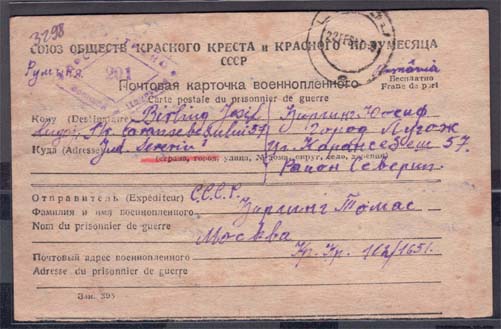 3298
СОЮЗ ОБЩЕСТВ КРАСНОГО КРЕСТА и КРАСНОГО ПОЛУМЕСЯЦА
СССР
Румыния
201
România
Бесплатно
Franc de port
Почтовая карточка военнопленного
Carte postale du prisonnier de guerre
Кому (Destinataire) Birling Josif Бирлинг Иосиф
Lugoj, Str. Caransebeșului 57 город Лугож
Куда (Adresse) Jud. Severin ул. Карансебеш 57.
(страна, город, улица, № дома, округ, село, деревня)
Район Северин
Отправитель (Expéditeur) С.С.С.Р.
Фамилия и имя военнопленного Бирлинг Томас
Nom du prisonnier de guerre
Москва
Почтовый адрес военнопленного Кр. Кр. 102/1651.
Adresse du prisonnier de guerre
Зак. 305